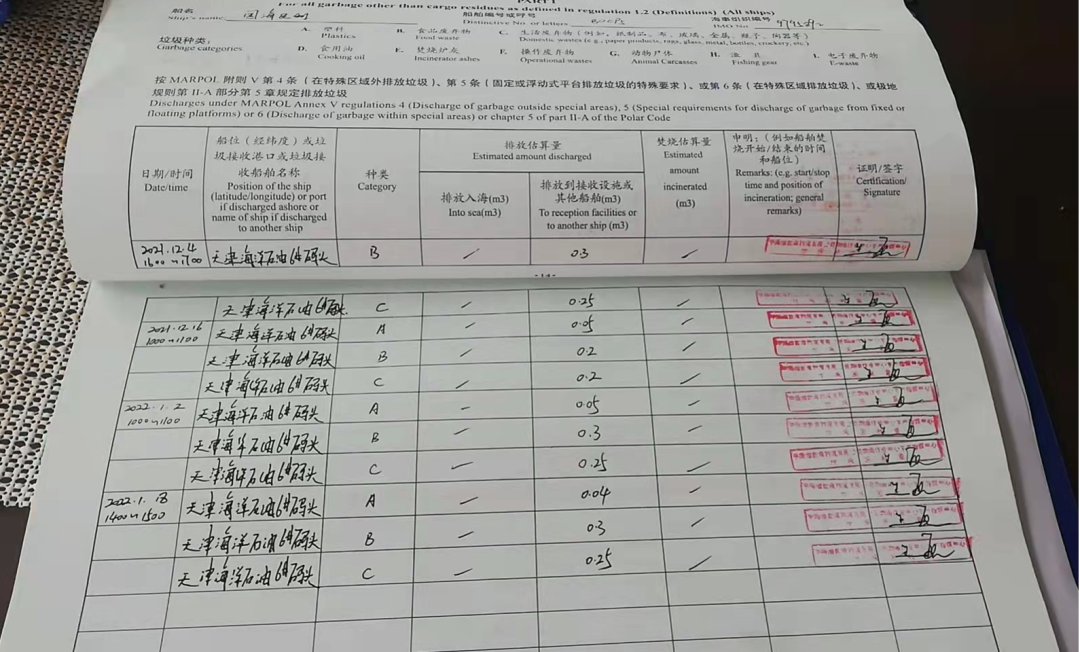 PART I
For all garbage other than cargo residues as defined in regulation 1.2 (Definitions) (All ships)
船名
Ship's name:
船舶编号或呼号
Distinctive No. or letters
海事组织编号
IMO No.
垃圾种类:
Garbage categories
A. 塑料
Plastics
B. 食品废弃物
Food waste
C. 生活废弃物(例如,纸制品、布、玻璃、金属、瓶子、陶器等)
Domestic wastes (e.g., paper products, rags, glass, metal, bottles, crockery, etc.)
D. 食用油
Cooking oil
E. 焚烧炉灰
Incinerator ashes
F. 操作废弃物
Operational wastes
G. 动物尸体
Animal Carcasses
H. 渔具
Fishing gear
I. 电子废弃物
E-waste
按 MARPOL 附则 V 第 4 条(在特殊区域外排放垃圾)、第 5 条(固定或浮动式平台排放垃圾的特殊要求)、或第 6 条(在特殊区域排放垃圾)、或极地
规则第 II-A 部分第 5 章规定排放垃圾
Discharges under MARPOL Annex V regulations 4 (Discharge of garbage outside special areas), 5 (Special requirements for discharge of garbage from fixed or
floating platforms) or 6 (Discharge of garbage within special areas) or chapter 5 of part II-A of the Polar Code
日期/时间
Date/time
船位(经纬度)或垃
圾接收港口或垃圾接
收船舶名称
Position of the ship
(latitude/longitude) or port
if discharged ashore or
name of ship if discharged
to another ship
种类
Category
排放估算量
Estimated amount discharged
排放入海(m3)
Into sea(m3)
排放到接收设施或
其他船舶(m3)
To reception facilities or
to another ship (m3)
焚烧估算量
Estimated
amount
incinerated
(m3)
申明:(例如船舶焚
烧开始/结束的时间
和船位)
Remarks: (e.g. start/stop
time and position of
incineration; general
remarks)
证明/签字
Certification/
Signature
2021.12.4
1600~1700
天津海洋石油6#码头 B / 0.3 /
-14-
天津海洋石油6#码头 C / 0.25 /
2021.12.16
1000~1100
天津海洋石油6#码头 A / 0.05 /
天津海洋石油6#码头 B / 0.2 /
天津海洋石油6#码头 C / 0.2 /
2022.1.2
1000~1100
天津海洋石油6#码头 A / 0.05 /
天津海洋石油6#码头 B / 0.3 /
天津海洋石油6#码头 C / 0.25 /
2022.1.18
1400~1500
天津海洋石油6#码头 A / 0.04 /
天津海洋石油6#码头 B / 0.3 /
天津海洋石油6#码头 C / 0.25 /